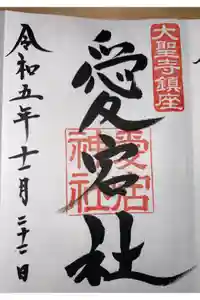 大聖寺鎮座
愛宕社
愛宕神社
令和五年十一月二十二日